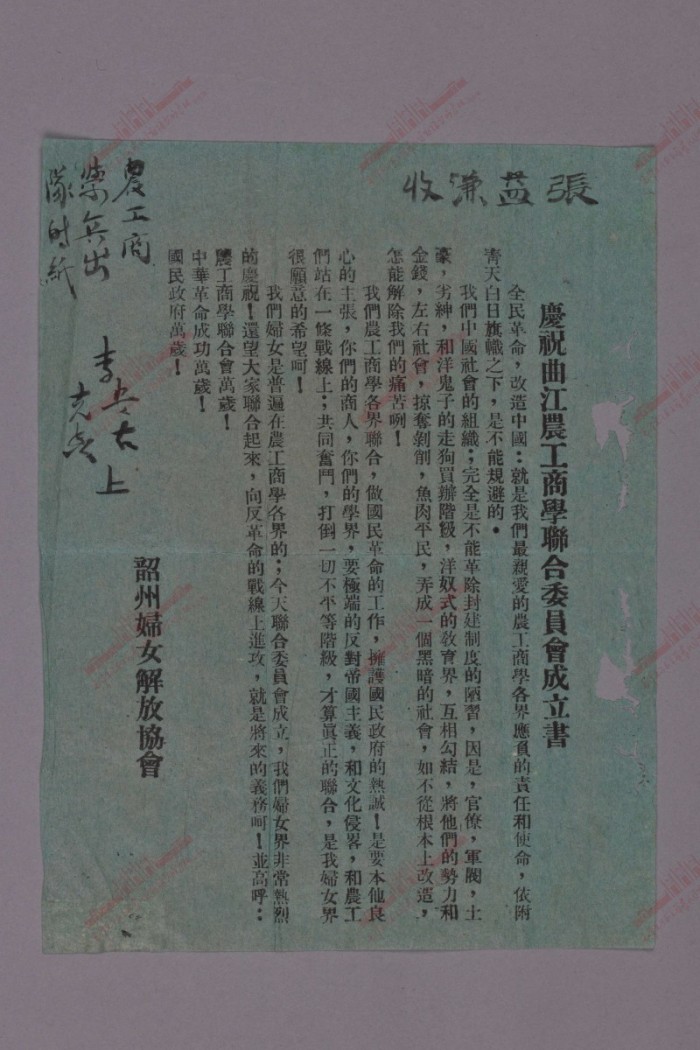 張益濂收
慶祝曲江農工商學聯合委員會成立書
全民革命，改造中國：就是我們最親愛的農工商學各界應負的責任和使命，依附
靑天白日旗幟之下，是不能規避的。
我們中國社會的組織；完全是不能革除封建制度的陋習，因是，官僚，軍閥，土
豪，劣紳，和洋鬼子的走狗買辦階級，洋奴式的敎育界，互相勾結，將他們的勢力和
金錢，左右社會，掠奪剝削，魚肉平民，弄成一個黑暗的社會，如不從根本上改造，
怎能解除我們的痛苦咧！
我們農工商學各界聯合，做國民革命的工作，擁護國民政府的熱誠！是要本他良
心的主張，你們的商人，你們的學界，要極端的反對帝國主義，和文化侵畧，和農工
們站在一條戰線上；共同奮鬥，打倒一切不平等階級，才算眞正的聯合，是我婦女界
很願意的希望呵！
我們婦女是普遍在農工商學各界的；今天聯合委員會成立，我們婦女界非常熱烈
的慶祝！還望大家聯合起來，向反革命的戰線上進攻，就是將來的義務呵！並高呼：
農工商學聯合會萬歲！
中華革命成功萬歲！
國民政府萬歲！
韶州婦女解放協會
農工商
出
隊時紙
李
上